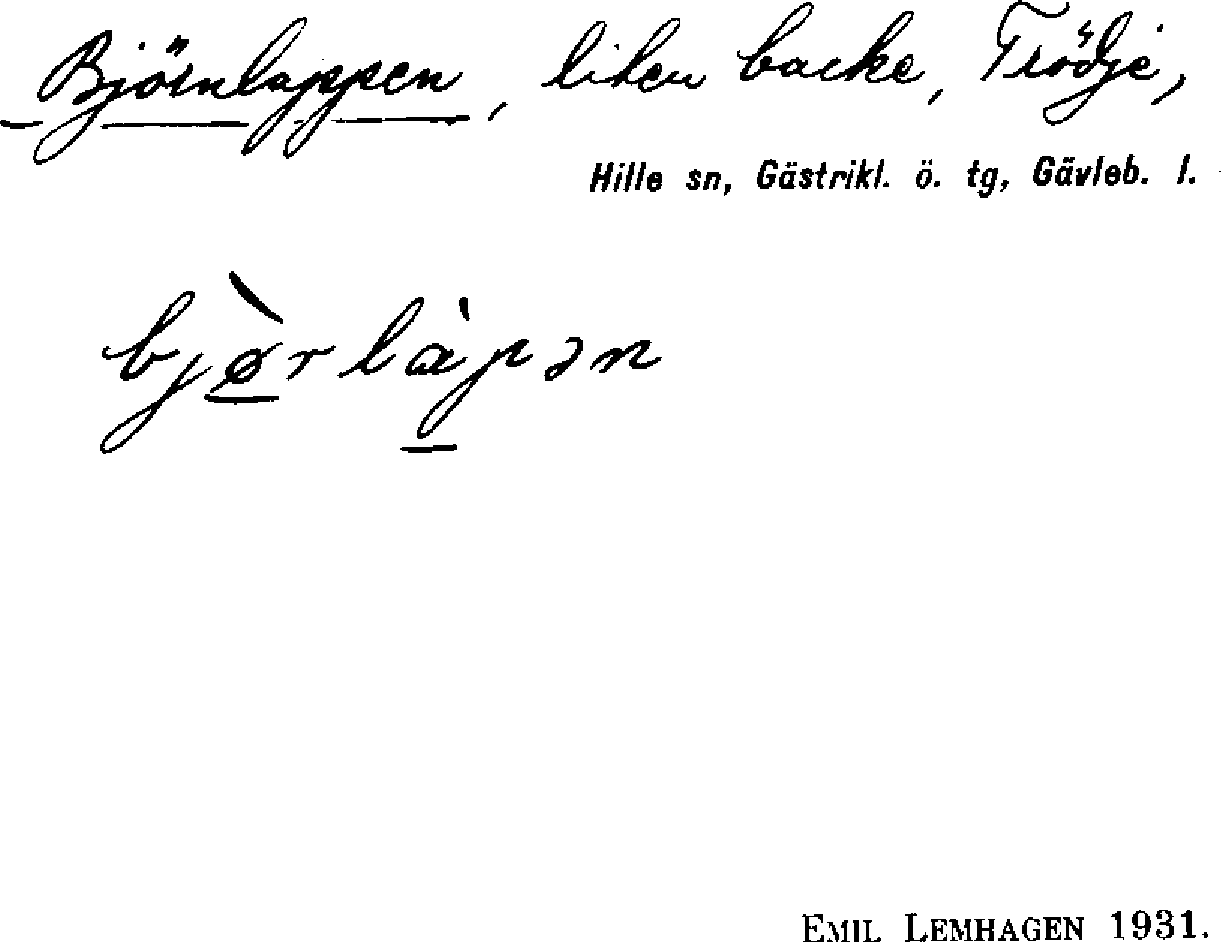 Björnlappen, liten backe, Trödje,
Hille sn, Gästrikl. ö. tg, Gävleb. l.
bjø̀rlàpən
EMIL LEMHAGEN 1931.